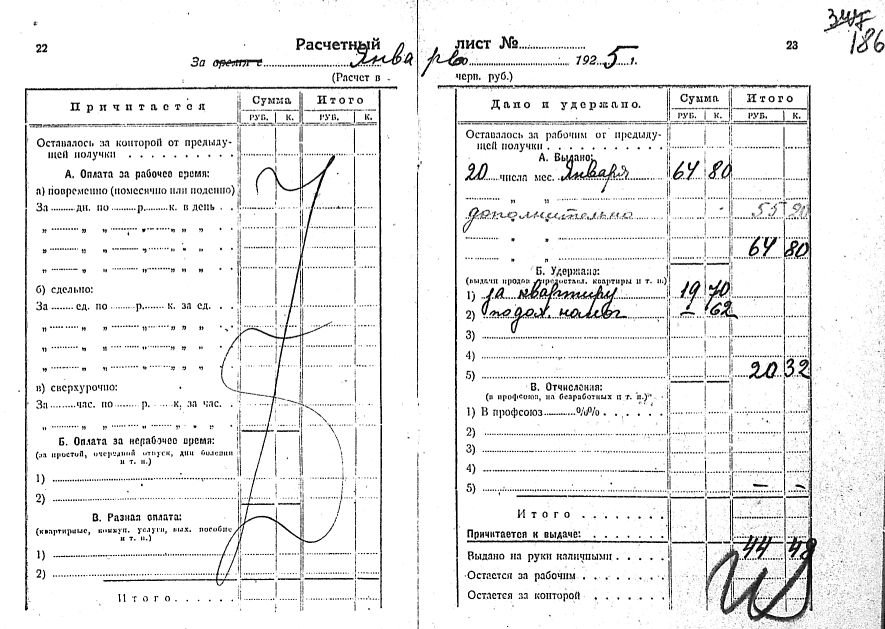 347
186
22
Расчетный
За время с Янва
(Расчет в
Причитается
Сумма Итого
РУБ. К. РУБ. К.
Оставалось за конторой от предыду-
щей получки
А. Оплата за рабочее время:
а) повременно (помесячно или поденно)
За ...... дн. по ...... р. ...... к. в день
„ „ „ „ „ „ „
„ „ „ „ „ „ „
„ „ „ „ „ „ „
б) сдельно:
За ...... ед. по ...... р. ...... к. за ед.
„ „ „ „ „ „ „
„ „ „ „ „ „ „
„ „ „ „ „ „ „
в) сверхурочно:
За ...... час. по ...... р. ...... к. за час.
„ „ „ „ „ „ „
Б. Оплата за нерабочее время:
(за простой, очередной отпуск, дни болезни
и т. п.)
1)
2)
В. Разная оплата:
(квартирные, коммун. услуги, вых. пособие
и т. п.)
1)
2)
Итого
лист №
23
рь 1925 г.
черв. руб.)
Дано и удержано.
Сумма Итого
РУБ. К. РУБ. К.
Оставалось за рабочим от предыду-
щей получки
А. Выдано:
20 числа мес. Января 64 80
„ „
дополнительно 55 20
„ „
64 80
Б. Удержано:
(выдачи продов. предоставл. квартиры и т. п.)
1) за квартиру 19 70
2) подох. налог — 62
3)
4)
5) 20 32
В. Отчисления:
(в профсоюз, на безработных и т. п.)
1) В профсоюз ...... %%
2)
3)
4)
5) — —
Итого
Причитается к выдаче:
Выдано на руки наличными 44 48
Остается за рабочим
Остается за конторой